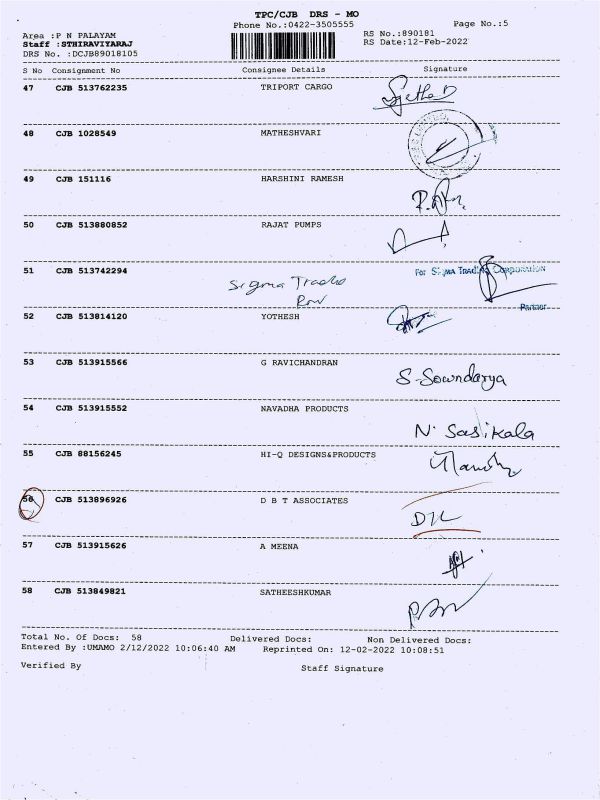 TPC/CJB DRS - MO
Phone No.:0422-3505555 Page No.:5
Area :P N PALAYAM RS No.:890181
Staff :STHIRAVIYARAJ RS Date:12-Feb-2022
DRS No. :DCJB89018105
S No Consignment No Consignee Details Signature
47 CJB 513762235 TRIPORT CARGO
48 CJB 1028549 MATHESHVARI
49 CJB 151116 HARSHINI RAMESH
50 CJB 513880852 RAJAT PUMPS
51 CJB 513742294 Sigma For Sigma Trading Corporation
Partner
52 CJB 513814120 YOTHESH
53 CJB 513915566 G RAVICHANDRAN
S. Sowndarya
54 CJB 513915552 NAVADHA PRODUCTS
N. Sasikala
55 CJB 88156245 HI-Q DESIGNS&PRODUCTS
56 CJB 513896926 D B T ASSOCIATES
57 CJB 513915626 A MEENA
58 CJB 513849821 SATHEESHKUMAR
Total No. Of Docs: 58 Delivered Docs: Non Delivered Docs:
Entered By :UMAMO 2/12/2022 10:06:40 AM Reprinted On: 12-02-2022 10:08:51
Verified By Staff Signature